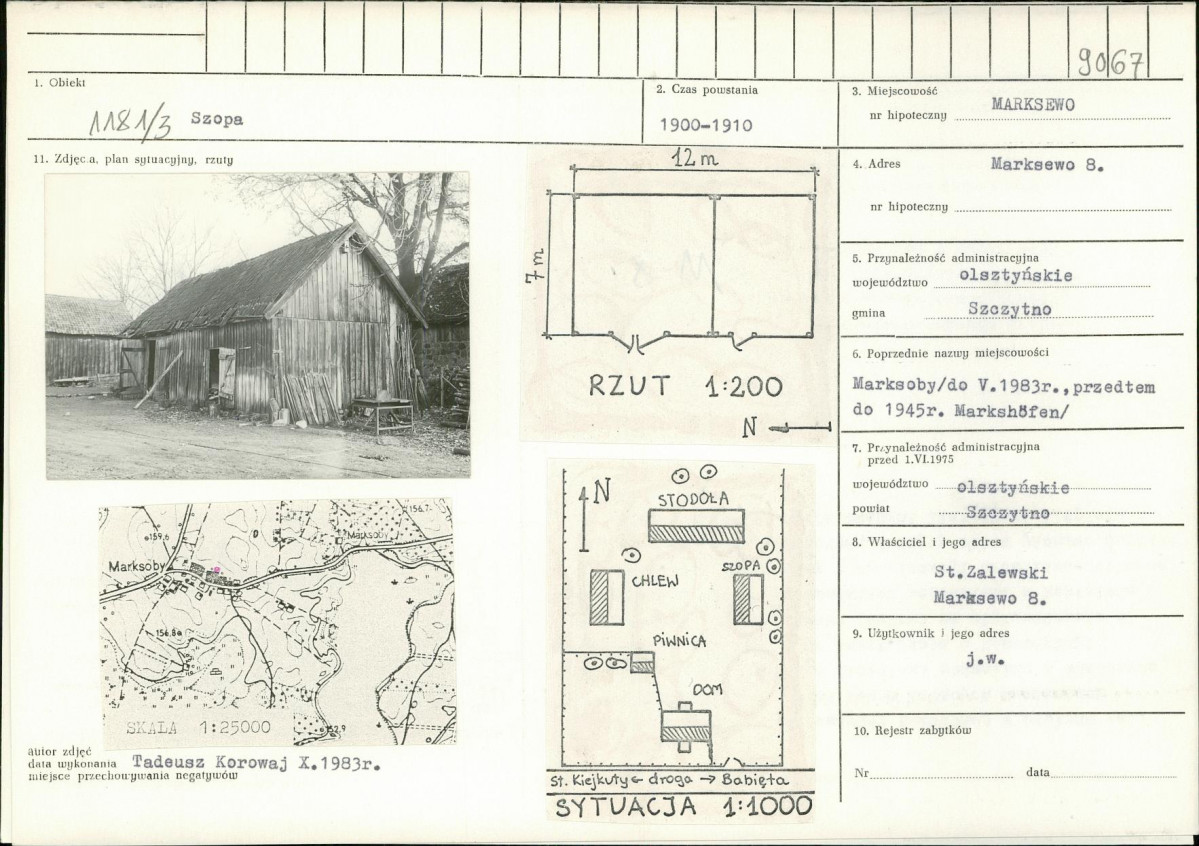 9067
1. Obiekt
1181/3 Szopa
2. Czas powstania
1900-1910
3. Miejscowość
MARKSEWO
nr hipoteczny
11. Zdjęcia, plan sytuacyjny, rzuty
12 m
7 m
RZUT 1:200
N
4. Adres
Marksewo 8.
nr hipoteczny
5. Przynależność administracyjna
województwo olsztyńskie
gmina Szczytno
6. Poprzednie nazwy miejscowości
Marksoby/do V.1983r., przedtem
do 1945r. Markshöfen/
7. Przynależność administracyjna
przed 1.VI.1975
województwo olsztyńskie
powiat Szczytno
8. Właściciel i jego adres
St.Zalewski
Marksewo 8.
9. Użytkownik i jego adres
j.w.
10. Rejestr zabytków
Nr data
156.7
159,6
Marksoby
Marksoby
156,8
SKALA 1:25000
N
STODOŁA
CHLEW
SZOPA
PIWNICA
DOM
St. Kiejkuty ← droga → Babięta
SYTUACJA 1:1000
autor zdjęć
data wykonania Tadeusz Korowaj X.1983r.
miejsce przechowywania negatywów